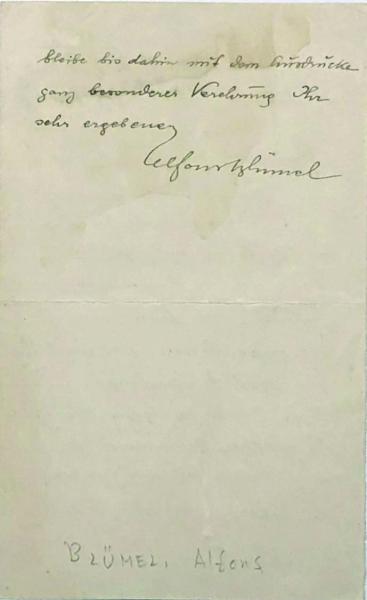 bleibe bis dahin mit dem Ausdrucke
ganz besonderer Verehrung Ihr
sehr ergebener
Alfons Blümel
BLÜMEL, Alfons